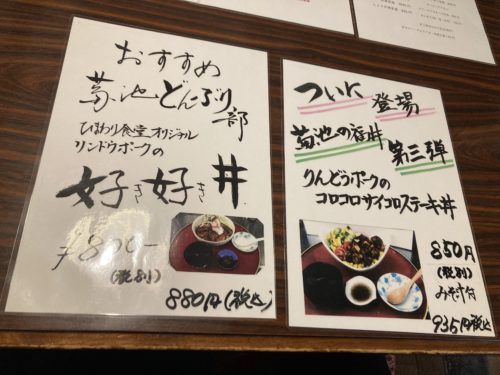 おすすめ
菊池どんぶり部
ひまわり食堂オリジナル
リンドウポークの
好き好き丼
¥800-
(税別)
880円(税込)
ついに登場
菊池の丼
第三弾
りんどうポークの
コロコロサイコロステーキ丼
850円
(税別)
みそ汁付
935円(税込)